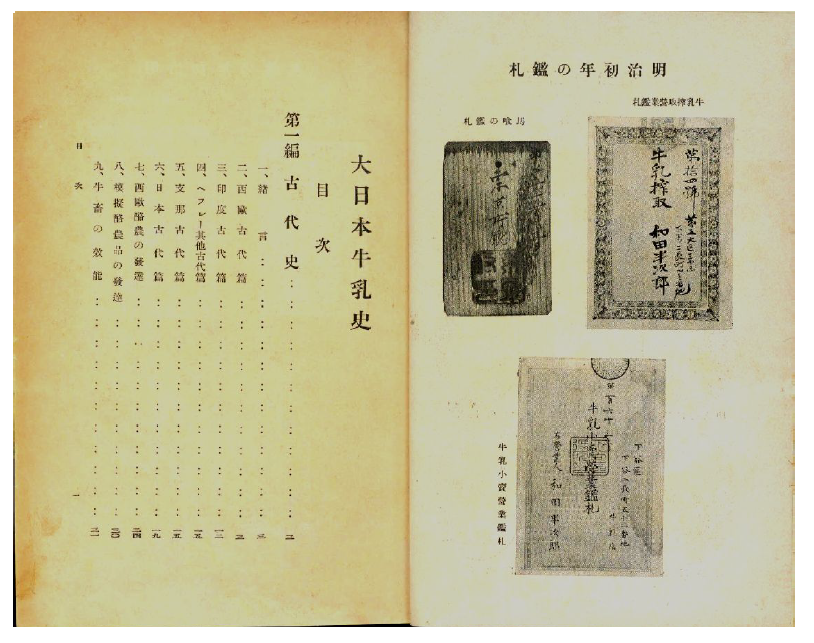 明治初年の鑑札
牛乳搾取營業鑑札
第拾四號
牛乳搾取 和田半次郎
馬喰の鑑札
牛乳小賣營業鑑札
下谷區
牛乳小賣營業鑑札
和田半次郎
大日本牛乳史
目次
第一編 古代史……
一、緒言……
二、西歐古代篇……
三、印度古代篇……一二
四、ヘブレー其他古代篇……一五
五、支那古代篇……一五
六、日本古代篇……一九
七、西歐酪農の發達……二四
八、模擬酪農品の發達……
九、牛畜の效能……
目次
一